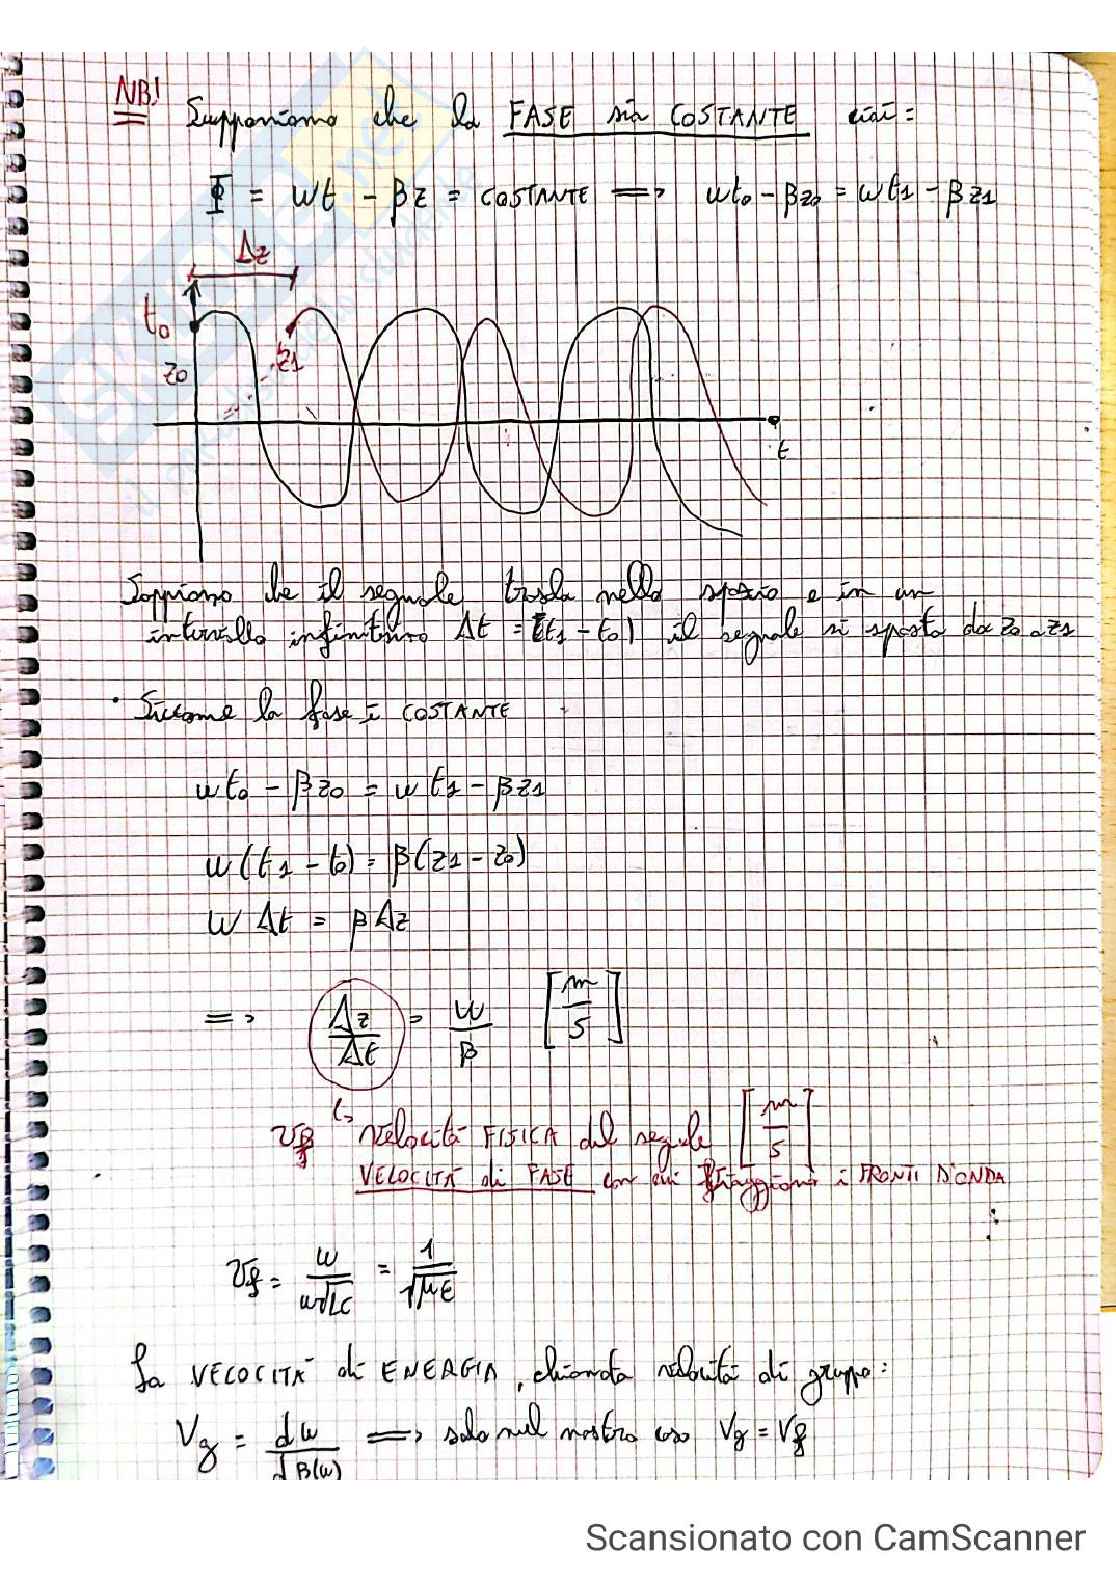 NB! Supponiamo che la FASE sia COSTANTE cioè:
Φ = ωt - βz = COSTANTE => ωt₀ - βz₀ = ωt₁ - βz₁
Δz
t₀
z₀
z₁
t
Sappiamo che il segnale trasla nello spazio e in un
intervallo infinitesimo Δt = (t₁ - t₀) il segnale si sposta da z₀ a z₁
· Siccome la fase è COSTANTE
ωt₀ - βz₀ = ωt₁ - βz₁
ω(t₁ - t₀) = β(z₁ - z₀)
ω Δt = βΔz
=> Δz/Δt = ω/β [m/s]
vf ↳ velocità FISICA del segnale [m/s]
VELOCITÀ di FASE con cui viaggiano i FRONTI D'ONDA
vf = ω/ω√LC = 1/√με
La VELOCITÀ di ENERGIA, chiamata velocità di gruppo:
Vg = dω/dβ(ω) => solo nel nostro caso Vg = Vf
Scansionato con CamScanner